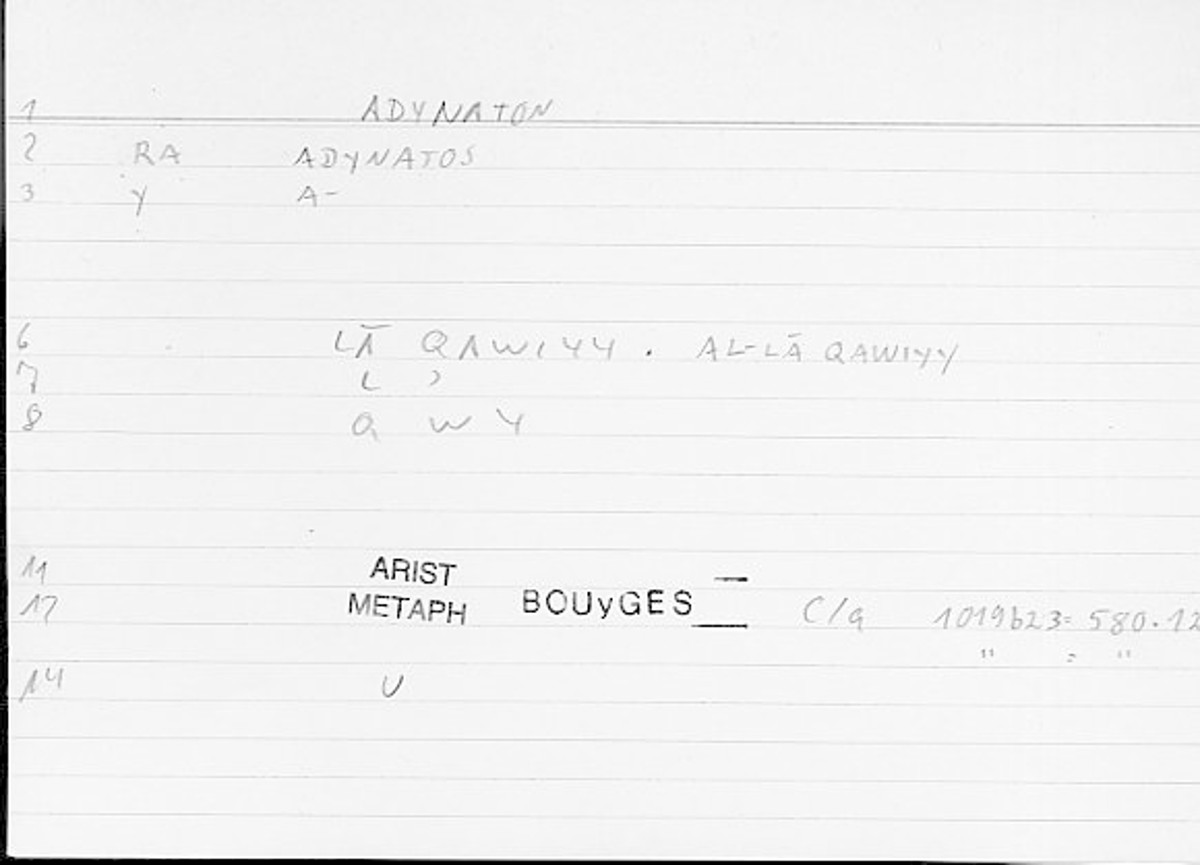 1 ADYNATON
2 RA ADYNATOS
3 Y A-
6 LĀ QAWIYY . AL-LĀ QAWIYY
7 L )
8 Q W Y
11 ARIST —
12 METAPH BOUyGES__ C/a 1019b23= 580.12
" = "
14 U